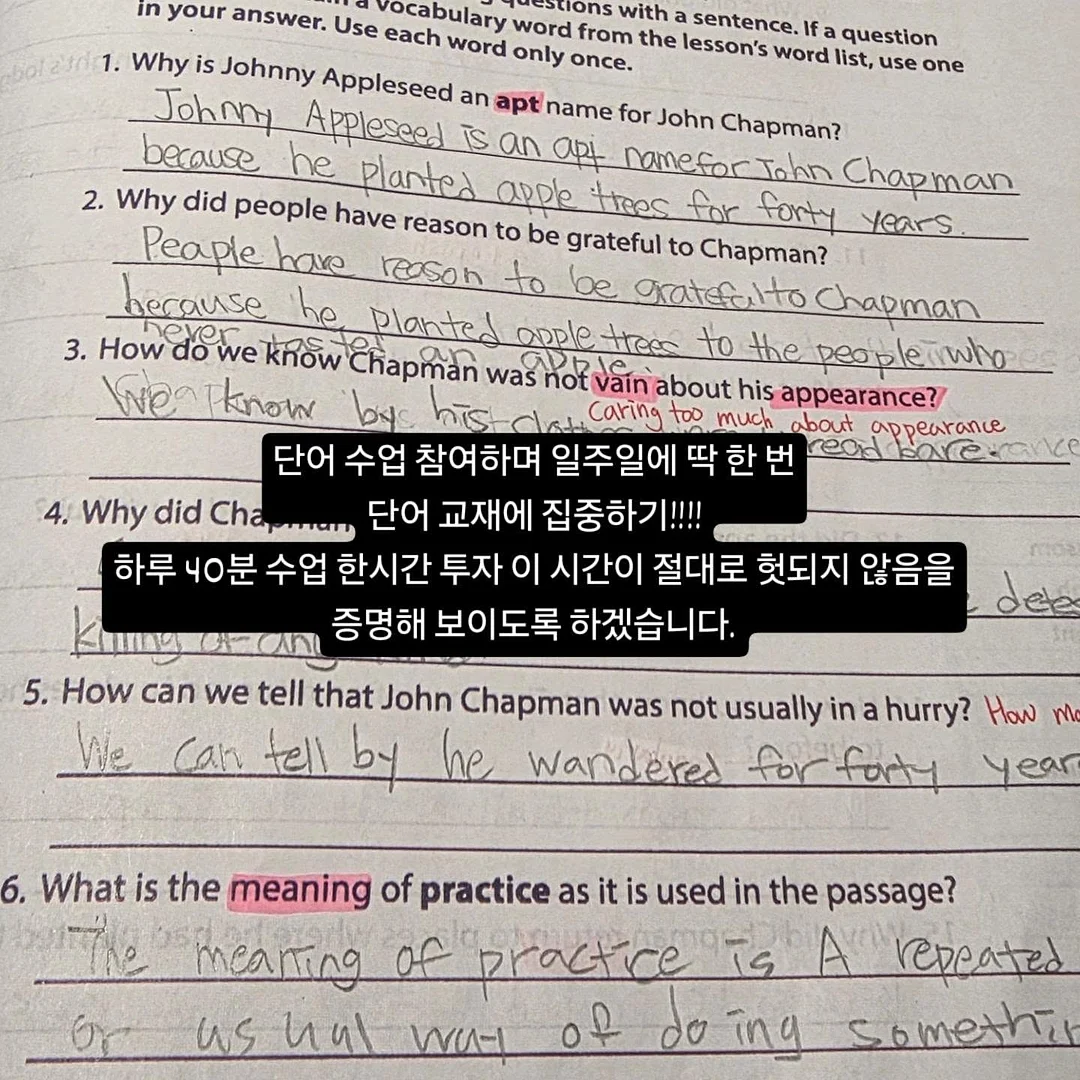 questions with a sentence. If a question
a vocabulary word from the lesson's word list, use one
in your answer. Use each word only once.
1. Why is Johnny Appleseed an apt name for John Chapman?
Johnny Appleseed is an apt name for John Chapman
because he planted apple trees for forty years.
2. Why did people have reason to be grateful to Chapman?
Peaple have reason to be grateful to Chapman
because he planted apple trees to the people who
never tasted an apple.
3. How do we know Chapman was not vain about his appearance?
caring too much about appearance
We know by his
단어 수업 참여하며 일주일에 딱 한 번
단어 교재에 집중하기!!!!
하루 40분 수업 한시간 투자 이 시간이 절대로 헛되지 않음을
증명해 보이도록 하겠습니다.
4. Why did
killing
5. How can we tell that John Chapman was not usually in a hurry? How
We can tell by he wandered for forty year
6. What is the meaning of practice as it is used in the passage?
The meaning of practice is A repeated
or usual way of doing somethin